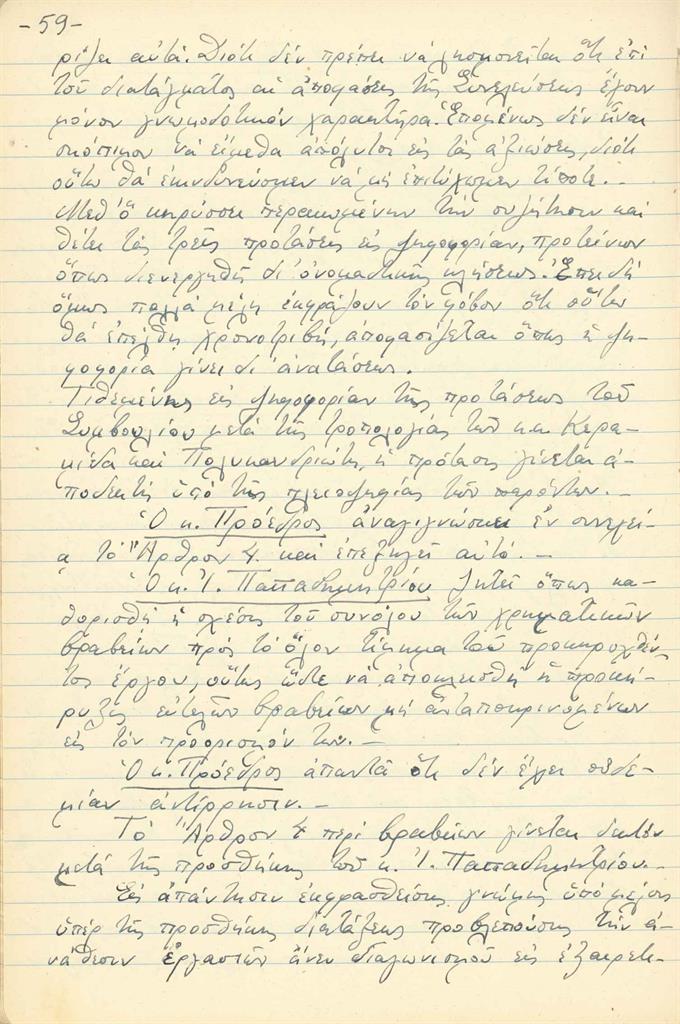 -59-
ρίζει αὐτά. Διότι δέν πρέπει νά λησμονεῖται ὅτι ἐπί
τοῦ διατάγματος αἱ ἀποφάσεις τῆς Συνελεύσεως ἔχουν
μόνον γνωμοδοτικόν χαρακτῆρα. Ἑπομένως δέν εἶναι
σκόπιμον νά εἴμεθα ἀπόλυτοι εἰς τάς ἀξιώσεις, διότι
οὕτω θά ἐκινδυνεύσωμεν νά μή ἐπιτύχωμεν τίποτε.-
Μεθ' ὅ κηρύσσει περαιωμένην τήν συζήτησιν καί
θέτει τάς τρεῖς προτάσεις εἰς ψηφοφορίαν, προτείνων
ὅπως διενεργηθῇ δι' ὀνομαστικῆς κλήσεως. Ἐπειδή
ὅμως πολλά μέλη ἐκφράζουν τόν φόβον ὅτι οὕτω
θά ἐπέλθῃ χρονοτριβή, ἀποφασίζεται ὅπως ἡ ψη-
φοφορία γίνει δι' ἀνατάσεως.
Τιθεμένης εἰς ψηφοφορίαν τῆς προτάσεως τοῦ
Συμβουλίου μετά τῆς τροπολογίας τῶν κ.κ. Κερα-
μίδα καί Πολυκανδριώτη, ἡ πρότασις γίνεται ἀ-
ποδεκτή ὑπό τῆς πλειοψηφίας τῶν παρόντων.-
Ὁ κ. Πρόεδρος ἀναγιγνώσκει ἐν συνεχεί-
ᾳ τό Ἄρθρον 4 καί ἐπεξηγεῖ αὐτό.-
Ὁ κ. Ἰ. Παπαδημητρίου ζητεῖ ὅπως κα-
θορισθῇ ἡ σχέσις τοῦ συνόλου τῶν χρηματικῶν
βραβείων πρός τό ὅλον τίμημα τοῦ προκηρυχθέν-
τος ἔργου, οὕτως ὥστε νά ἀποκλεισθῇ ἡ προκή-
ρυξις εὐτελῶν βραβείων μή ἀνταποκρινομένων
εἰς τόν προορισμόν των.-
Ὁ κ. Πρόεδρος ἀπαντᾶ ὅτι δέν ἔχει οὐδε-
μίαν ἀντίρρησιν.-
Τό Ἄρθρον 4 περί βραβείων γίνεται δεκτόν
μετά τῆς προσθήκης τοῦ κ. Ἰ. Παπαδημητρίου.-
Εἰς ἀπάντησιν ἐκφρασθείσης γνώμης ὑπό μέλους
ὑπέρ τῆς προσθήκης διατάξεως προβλεπούσης τήν ἀ-
νάθεσιν ἐργασιῶν ἄνευ διαγωνισμοῦ εἰς ἐξαιρετι-